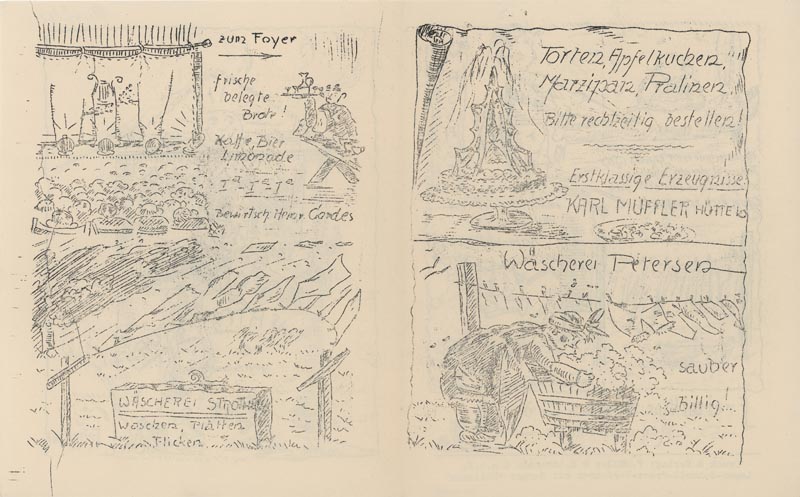 zum Foyer
frische
belegte
Brote!
Kaffe, Bier
Limonade
Ia Ia Ia
Bewirtsch. Herr Cordes
WÄSCHEREI STROTH
Waschen, Plätten
Flicken
Torten, Apfelkuchen,
Marzipan, Pralinen.
Bitte rechtzeitig bestellen!
Erstklassige Erzeugnisse
KARL MUFFLER HÜTTE 10
Wäscherei Petersen
sauber
billig!